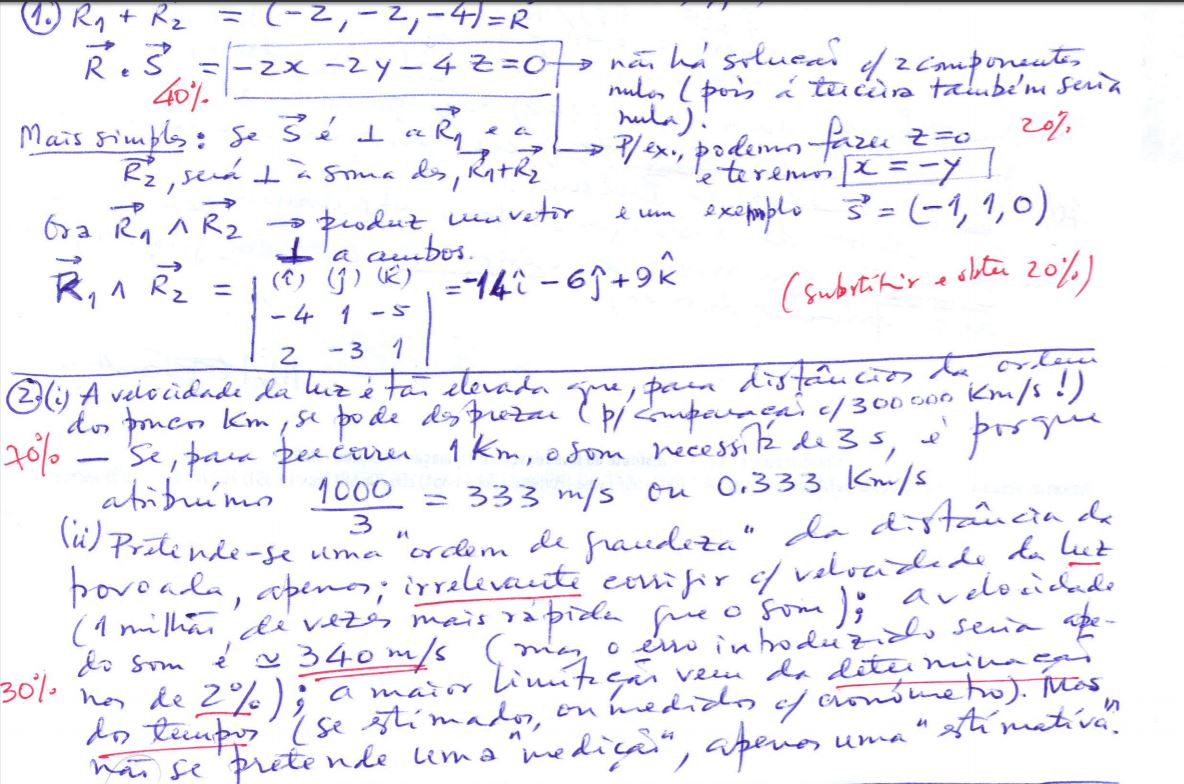 1. R₁ + R₂ = (-2, -2, -4) = R
R⃗ . S⃗ = -2x - 2y - 4z = 0 → não há solução c/ 2 componentes
40% nulas (pois a terceira também seria
nula).
Mais simples: Se S⃗ é ⊥ a R⃗₁ e a → P/ex., podemos fazer z=0 20%
R⃗₂, será ⊥ à soma dos, R⃗₁+R⃗₂ e teremos x = -y
Ora R⃗₁ ∧ R⃗₂ → produz um vetor e um exemplo S⃗ = (-1, 1, 0)
⊥ a ambos.
R⃗₁ ∧ R⃗₂ = | (î) (ĵ) (k̂) | = -14î - 6ĵ + 9k̂ (substituir e obter 20%)
-4 1 -5
2 -3 1
2. (i) A velocidade da luz é tão elevada que, para distâncias da ordem
dos poucos Km, se pode desprezar (p/ comparação c/ 300000 Km/s!)
70% — Se, para percorrer 1 Km, o som necessita de 3 s, é porque
atribuimos 1000/3 = 333 m/s ou 0.333 Km/s
(ii) Pretende-se uma "ordem de grandeza" da distância da
trovoada, apenas; irrelevante corrigir c/ velocidade da luz
(1 milhão de vezes mais rápida que o som); a velocidade
do som é ≃ 340 m/s (mas o erro introduzido seria ape-
30% nas de 2%); a maior limitação vem da determinação
dos tempos (se estimados, ou medidos c/ cronómetro). Mas
não se pretende uma "medição", apenas uma "estimativa".